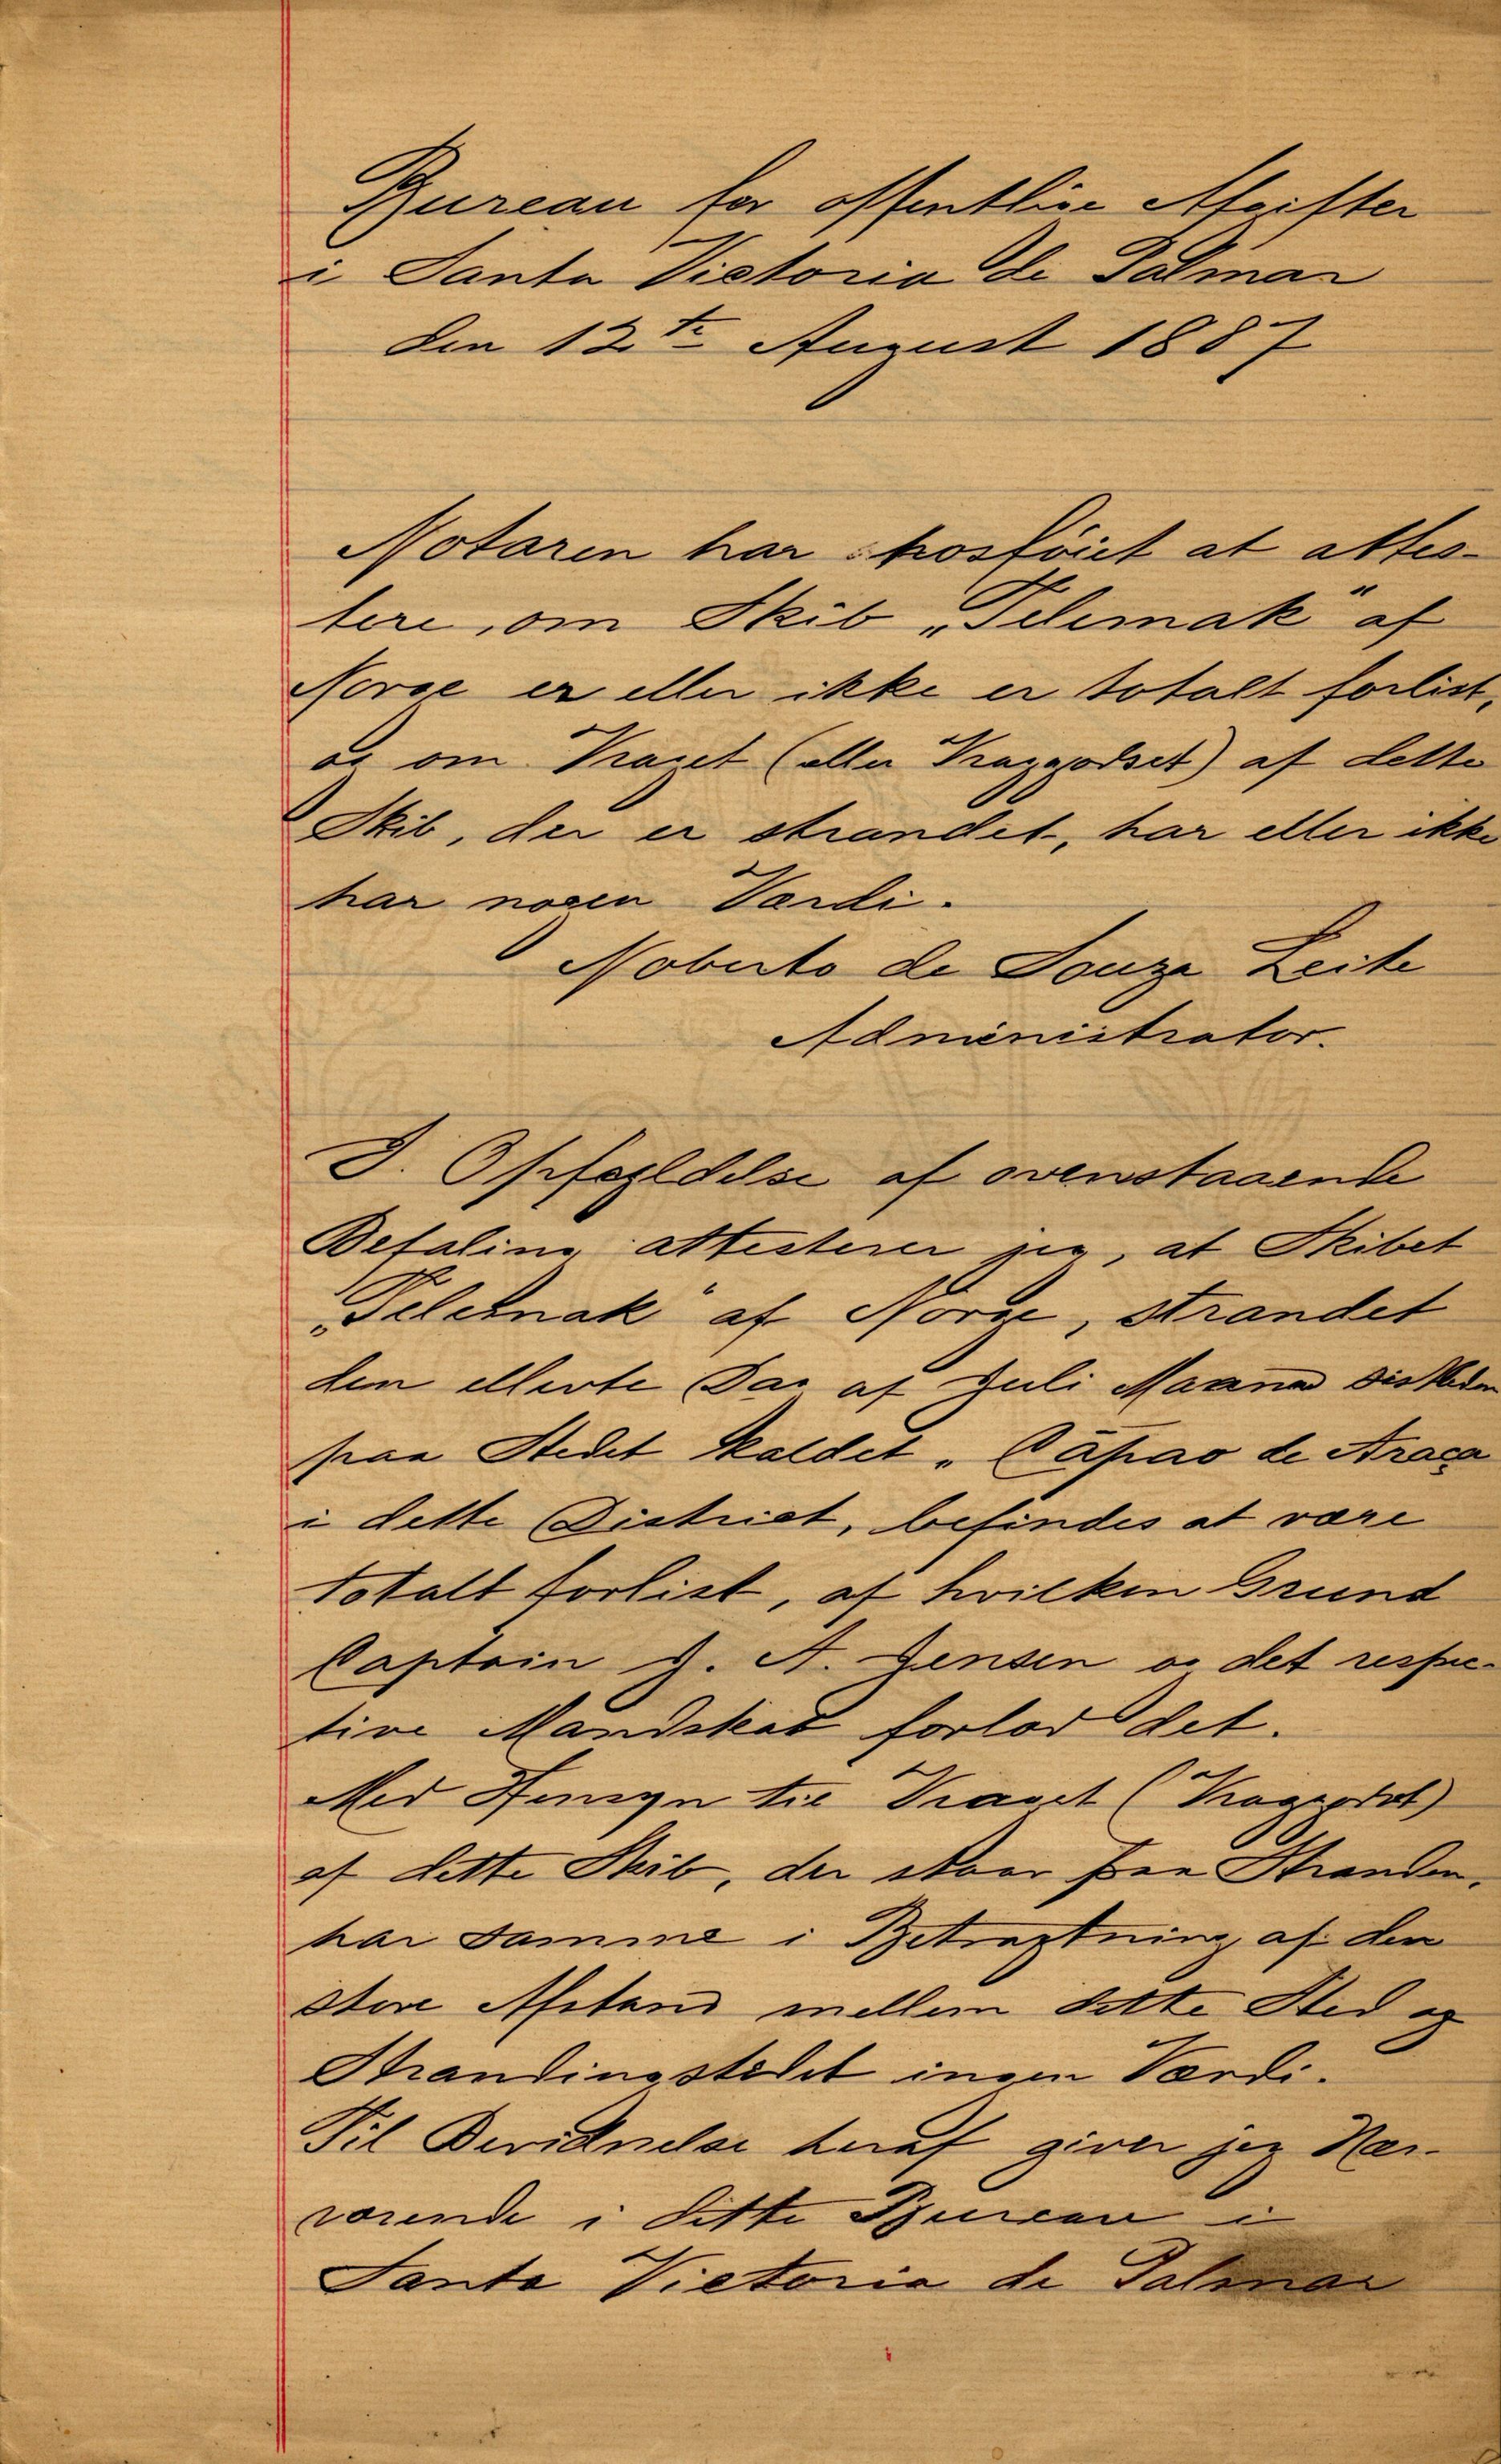 Bureau for offentlige Afgifter
i Santa Victoria de Palmar
den 12te August 1887
Notaren har hosföiet at attes-
tere, om Skib „Telemak" af
Norge er eller ikke er totalt forlist,
og om Vraget (eller Vraggodset) af dette
Skib, der er strandet, har eller ikke
har nogen Værdi.
Noberto de Souza Leite
Administrator.
I. Opfyldelse af ovenstaaende
Befaling attesterer jeg, at Skibet
„Telemak" af Norge, strandet
den ellevte Dag af Juli Maaned
paa Stedet kaldet „Cāpao de Araça
i dette District, befindes at være
totalt forlist, af hvilken Grund
Captain J. A. Jensen og det respec-
tive Mandskab forlod det.
Med Hensyn til Vraget (Vraggodset)
af dette Skib, der staar paa Stranden,
har samme i Betragtning af den
store Afstand mellem dette Sted og
Strandingsstedet ingen Værdi.
Til Bevidnelse heraf giver jeg Nær-
værende i dette Bureau i
Santa Victoria de Palmar